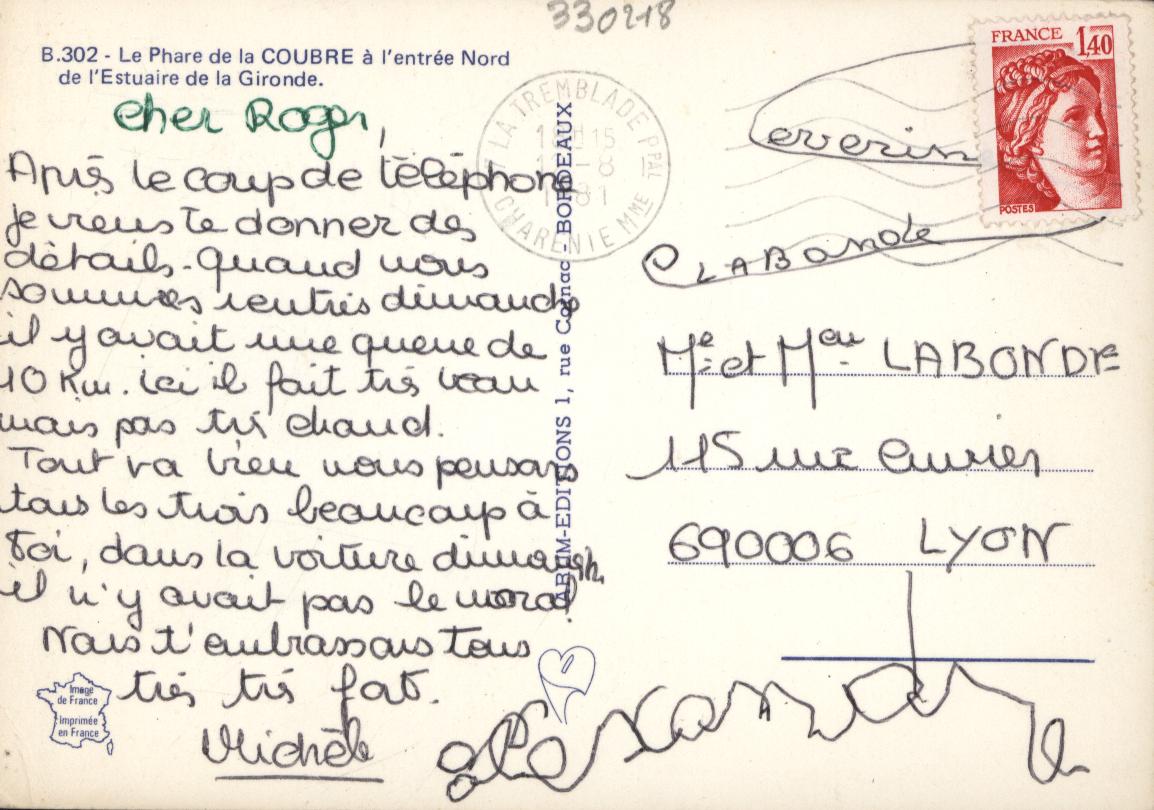 330218
B.302 - Le Phare de la COUBRE à l'entrée Nord
de l'Estuaire de la Gironde.
cher Roger,
Après le coup de téléphone
je viens te donner des
détails. quand nous
sommes rentrés dimanche
il y avait une queue de
10 Km. ici il fait très beau
mais pas très chaud.
Tout va bien nous pensons
tous les trois beaucoup à
toi, dans la voiture dimanch
il n'y avait pas le moral
Nous t'embrassons tous
très très fort.
Michèle
Image
de France
Imprimée
en France
ALBUM-EDITIONS 1, rue Cognac - BORDEAUX
LA TREMBLADE PPAL
15
-8
1981
CHARENTE MME
FRANCE 1,40
POSTES
everin
LABONDE
Me et Mau LABONDE
115 rue Cuvier
690006 LYON
alexandre